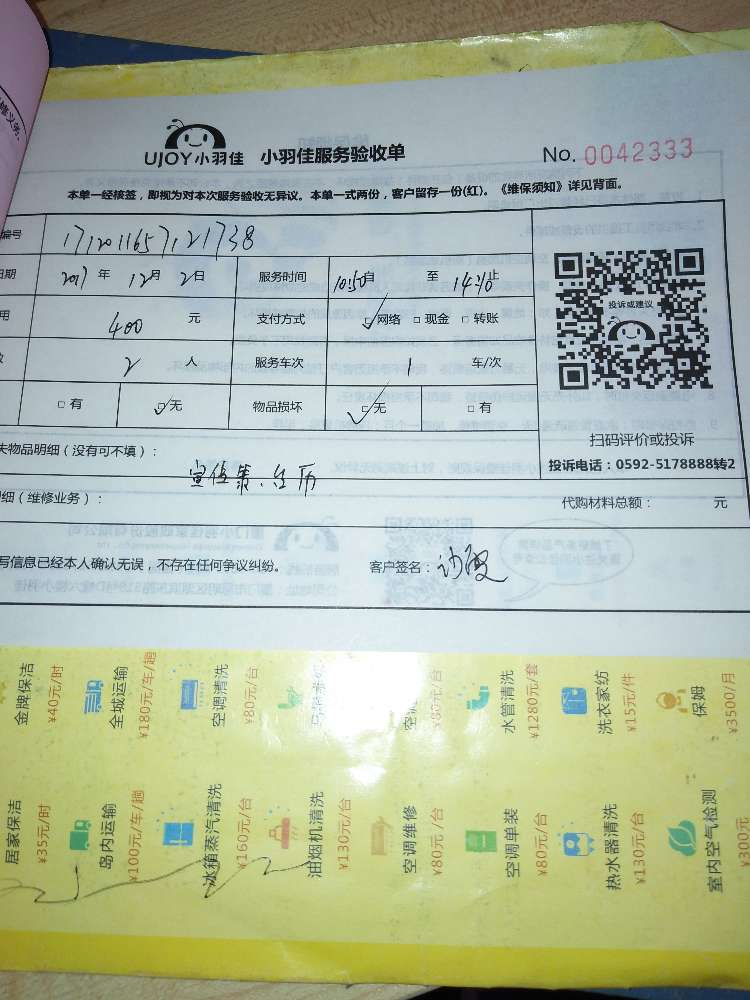 UJOY小羽佳 小羽佳服务验收单 No. 0042333
本单一经核签，即视为对本次服务验收无异议。本单一式两份，客户留存一份(红)。《维保须知》详见背面。
编号 171201165712 1738
日期 2017 年 12月 2日 服务时间 10:50自 至 14:20止
用 400 元 支付方式 ☑网络 □现金 □转账
数 2 人 服务车次 1 车/次
□有 ☑无 物品损坏 ☑无 □有
投诉或建议
扫码评价或投诉
投诉电话：0592-5178888转2
失物品明细（没有可不填）：
宣传袋、台历
明细（维修业务）： 代购材料总额： 元
写信息已经本人确认无误，不存在任何争议纠纷。 客户签名：
金牌保洁
¥40元/时
全城运输
¥180元/车/趟
空调清洗
¥80元/台
水管清洗
¥1280元/套
洗衣家纺
¥15元/件
保姆
¥3500/月
居家保洁
¥35元/时
岛内运输
¥100元/车/趟
冰箱蒸汽清洗
¥160元/台
油烟机清洗
¥130元/台
空调维修
¥80元/台
空调单装
¥80元/台
热水器清洗
¥130元/台
室内空气检测
¥300元